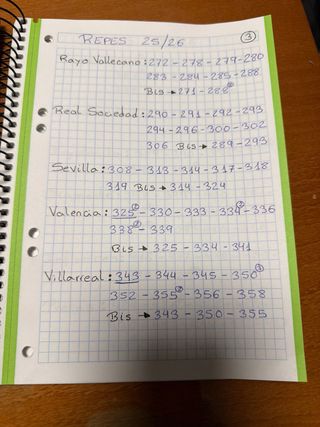 REPES 25/26
3
Rayo Vallecano: 272 - 278 - 279 - 280
283 - 284 - 285 - 288
Bis → 271 - 288
Real Sociedad: 290 - 291 - 292 - 293
294 - 296 - 300 - 302
306 Bis → 289 - 293
Sevilla: 308 - 313 - 314 - 317 - 318
319 Bis → 314 - 324
Valencia: 325 - 330 - 333 - 334 - 336
338 - 339
Bis → 325 - 334 - 341
Villarreal: 343 - 344 - 345 - 350
352 - 355 - 356 - 358
Bis → 343 - 350 - 355